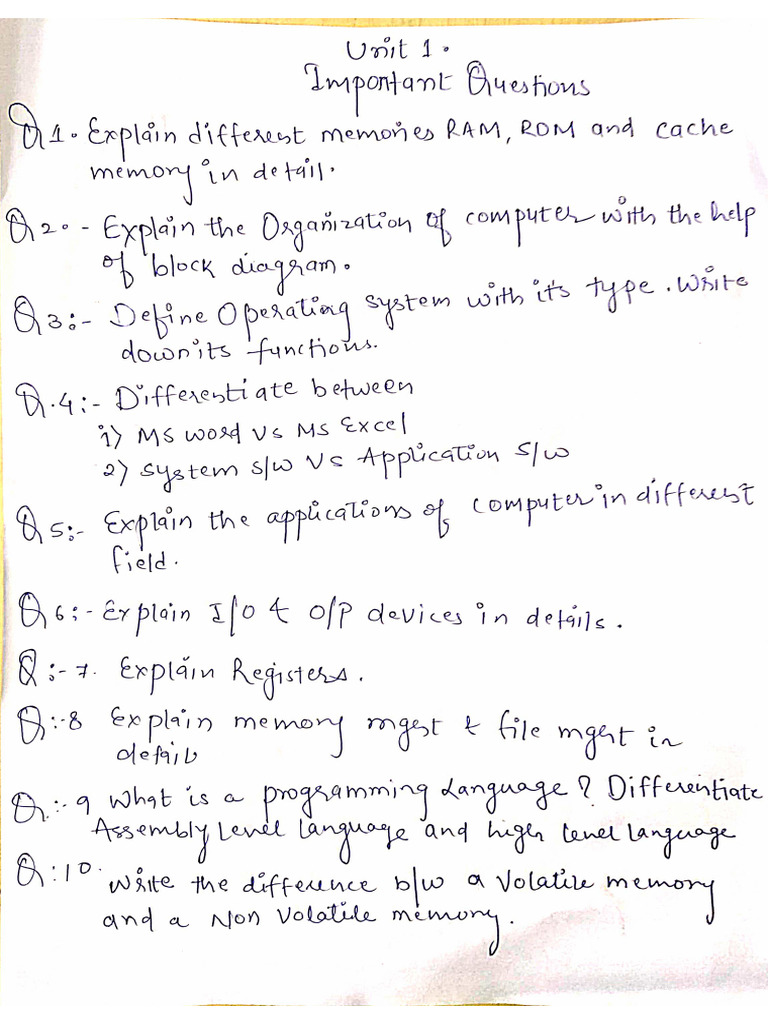 Unit 1.
Important Questions
Q1. Explain different memories RAM, ROM and cache
memory in detail.
Q2. - Explain the Organization of computer with the help
of block diagram.
Q3:- Define Operating system with its type. Write
down its functions.
Q.4:- Differentiate between
1) MS word VS MS Excel
2) System S/w VS Application S/w
Q5:- Explain the applications of computer in different
field.
Q6:- Explain I/O & O/P devices in details.
Q:-7. Explain Registers.
Q:-8 Explain memory mgst & file mgst in
detail
Q:-9 What is a programming Language? Differentiate
Assembly Level Language and high level language
Q:10. Write the difference b/w a volatile memory
and a Non volatile memory.